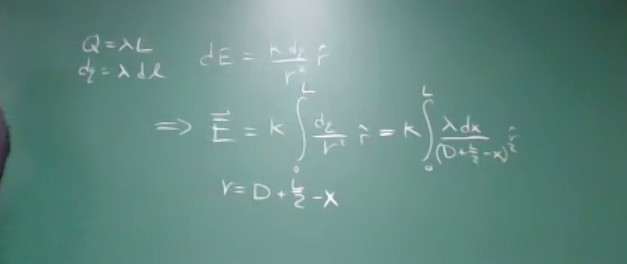 Q = λL
dq = λ dl
dE = k dq / r² r̂
⇒ E⃗ = k ∫₀ᴸ dq / r² r̂ = k ∫₀ᴸ λ dx / (D + L/2 - x)² r̂
r = D + L/2 - x